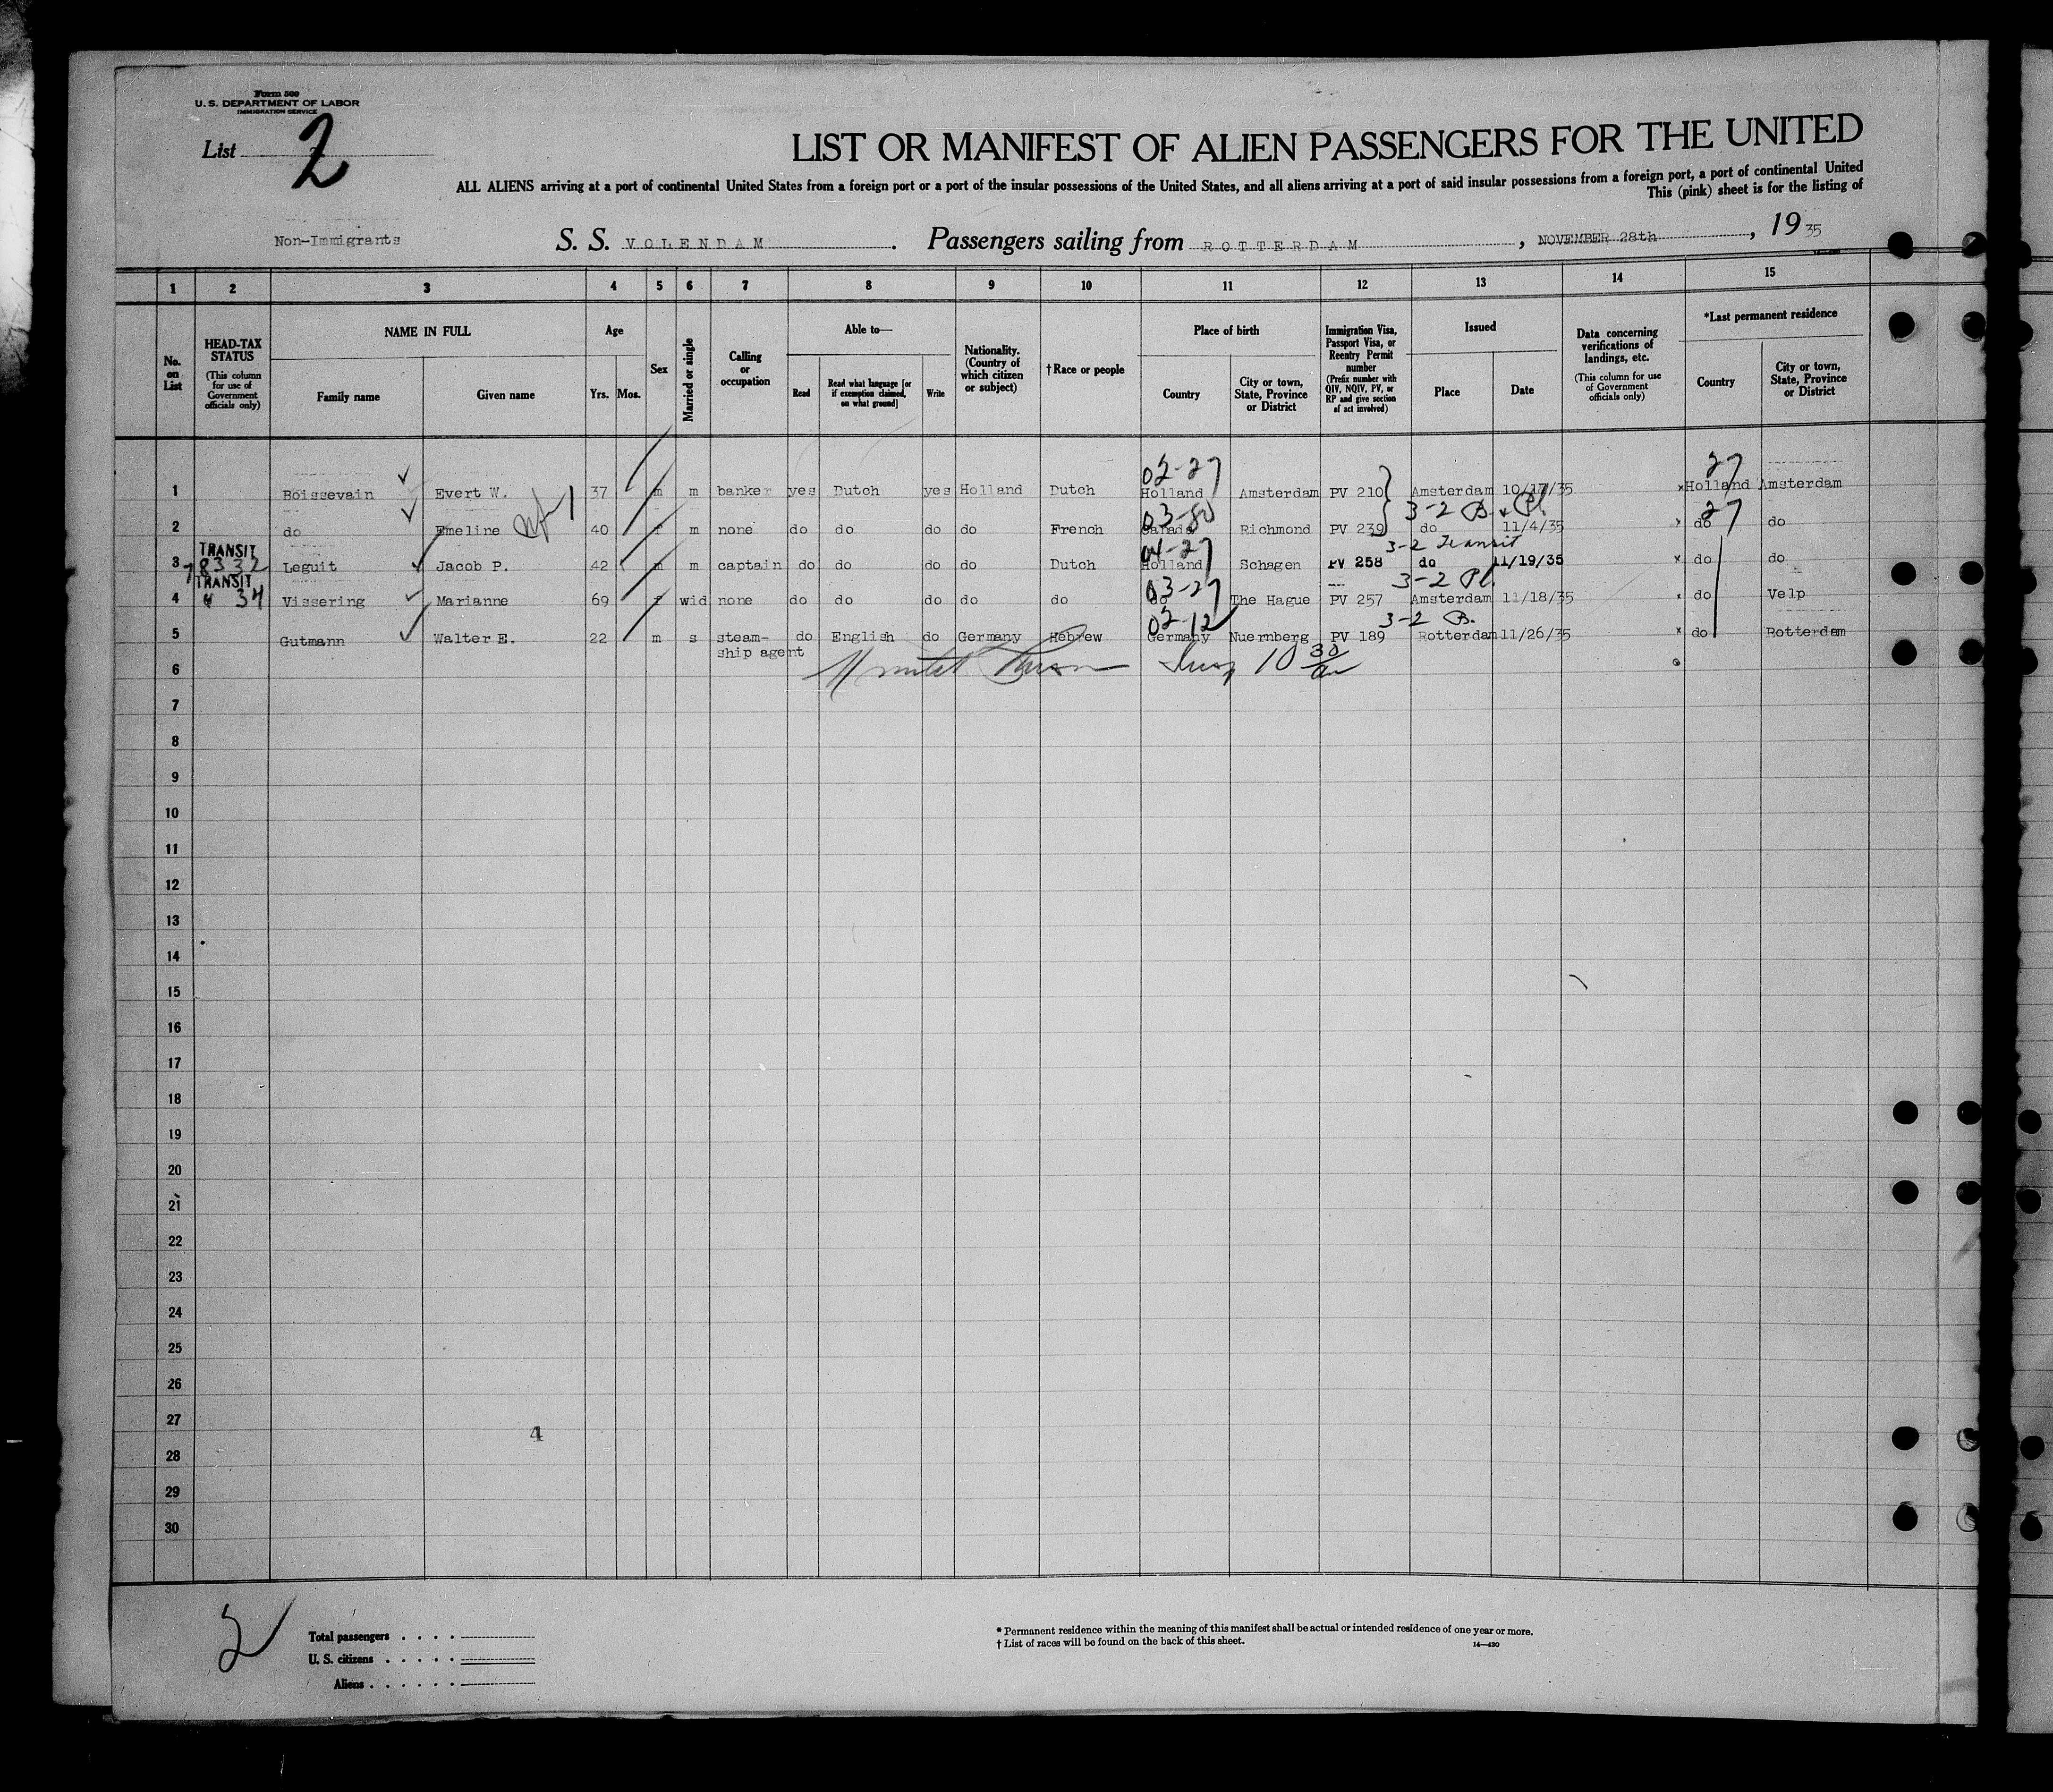 Form 500
U. S. DEPARTMENT OF LABOR
IMMIGRATION SERVICE
List 2
LIST OR MANIFEST OF ALIEN PASSENGERS FOR THE UNITED
ALL ALIENS arriving at a port of continental United States from a foreign port or a port of the insular possessions of the United States, and all aliens arriving at a port of said insular possessions from a foreign port, a port of continental United
This (pink) sheet is for the listing of
Non-Immigrants
S. S. VOLENDAM. Passengers sailing from ROTTERDAM, NOVEMBER 28th, 1935
1 2 3 4 5 6 7 8 9 10 11 12 13 14 15
No. on List
HEAD-TAX STATUS (This column for use of Government officials only)
NAME IN FULL
Family name Given name
Age
Yrs. Mos.
Sex
Married or single
Calling or occupation
Able to—
Read Read what language [or if exemption claimed, on what ground] Write
Nationality. (Country of which citizen or subject)
†Race or people
Place of birth
Country City or town, State, Province or District
Immigration Visa, Passport Visa, or Reentry Permit number (Prefix number with QIV, NQIV, PV, or RP and give section of act involved)
Issued
Place Date
Data concerning verifications of landings, etc. (This column for use of Government officials only)
*Last permanent residence
Country City or town, State, Province or District
02-27 27
1 Boissevain Evert W. 37 m m banker yes Dutch yes Holland Dutch Holland Amsterdam PV 210 Amsterdam 10/17/35 xHolland Amsterdam
03-80 3-2 B. & Pl. 27
2 do Emeline 40 f m none do do do do French Canada Richmond PV 239 do 11/4/35 x do do
TRANSIT 04-27 3-2 Transit
3 78332 Leguit Jacob P. 42 m m captain do do do do Dutch Holland Schagen PV 258 do 11/19/35 x do do
TRANSIT 03-27 3-2 Pl.
4 " 34 Vissering Marianne 69 f wid none do do do do do do The Hague PV 257 Amsterdam 11/18/35 x do Velp
02-12 3-2 B.
5 Gutmann Walter E. 22 m s steam-ship agent do English do Germany Hebrew Germany Nuernberg PV 189 Rotterdam 11/26/35 x do Rotterdam
6 10 30
7
8
9
10
11
12
13
14
15
16
17
18
19
20
21
22
23
24
25
26
27
4
28
29
30
2
Total passengers . . . .
U. S. citizens . . . . .
Aliens . . . . . .
* Permanent residence within the meaning of this manifest shall be actual or intended residence of one year or more.
† List of races will be found on the back of this sheet. 14—430